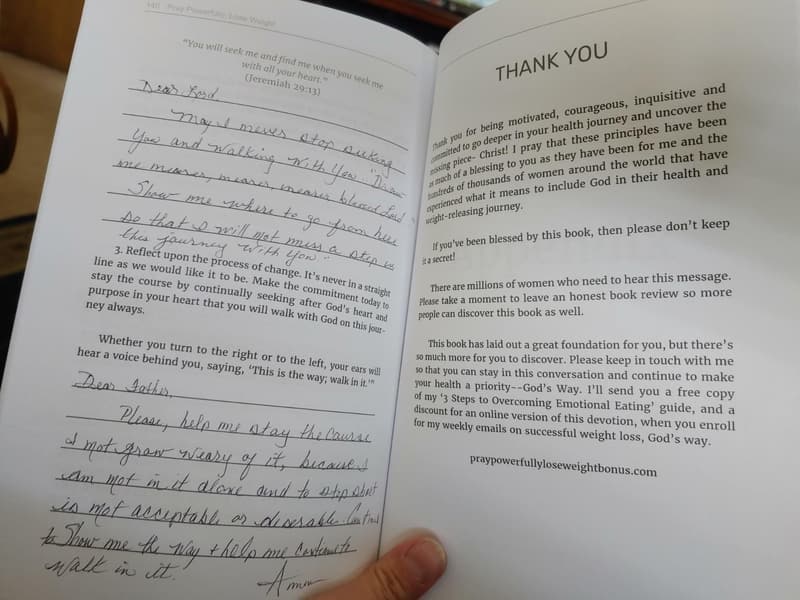 140 Pray Powerfully, Lose Weight
"You will seek me and find me when you seek me
with all your heart."
(Jeremiah 29:13)
Dear Lord,
May I never stop seeking
You and walking with You. "Draw
me nearer, nearer, nearer blessed Lord."
Show me where to go from here
so that I will not miss a step in
this journey with You.
3. Reflect upon the process of change. It's never in a straight
line as we would like it to be. Make the commitment today to
stay the course by continually seeking after God's heart and
purpose in your heart that you will walk with God on this jour-
ney always.
Whether you turn to the right or to the left, your ears will
hear a voice behind you, saying, 'This is the way; walk in it.'"
Dear Father,
Please, help me stay the course
& not grow weary of it, because I
am not in it alone and to stop short
is not acceptable or deserable. Continue
to Show me the Way + help me continue to
walk in it.
Amen
THANK YOU
Thank you for being motivated, courageous, inquisitive and
committed to go deeper in your health journey and uncover the
missing piece- Christ! I pray that these principles have been
as much of a blessing to you as they have been for me and the
hundreds of thousands of women around the world that have
experienced what it means to include God in their health and
weight-releasing journey.
If you've been blessed by this book, then please don't keep
it a secret!
There are millions of women who need to hear this message.
Please take a moment to leave an honest book review so more
people can discover this book as well.
This book has laid out a great foundation for you, but there's
so much more for you to discover. Please keep in touch with me
so that you can stay in this conversation and continue to make
your health a priority--God's Way. I'll send you a free copy
of my '3 Steps to Overcoming Emotional Eating' guide, and a
discount for an online version of this devotion, when you enroll
for my weekly emails on successful weight loss, God's way.
praypowerfullyloseweightbonus.com